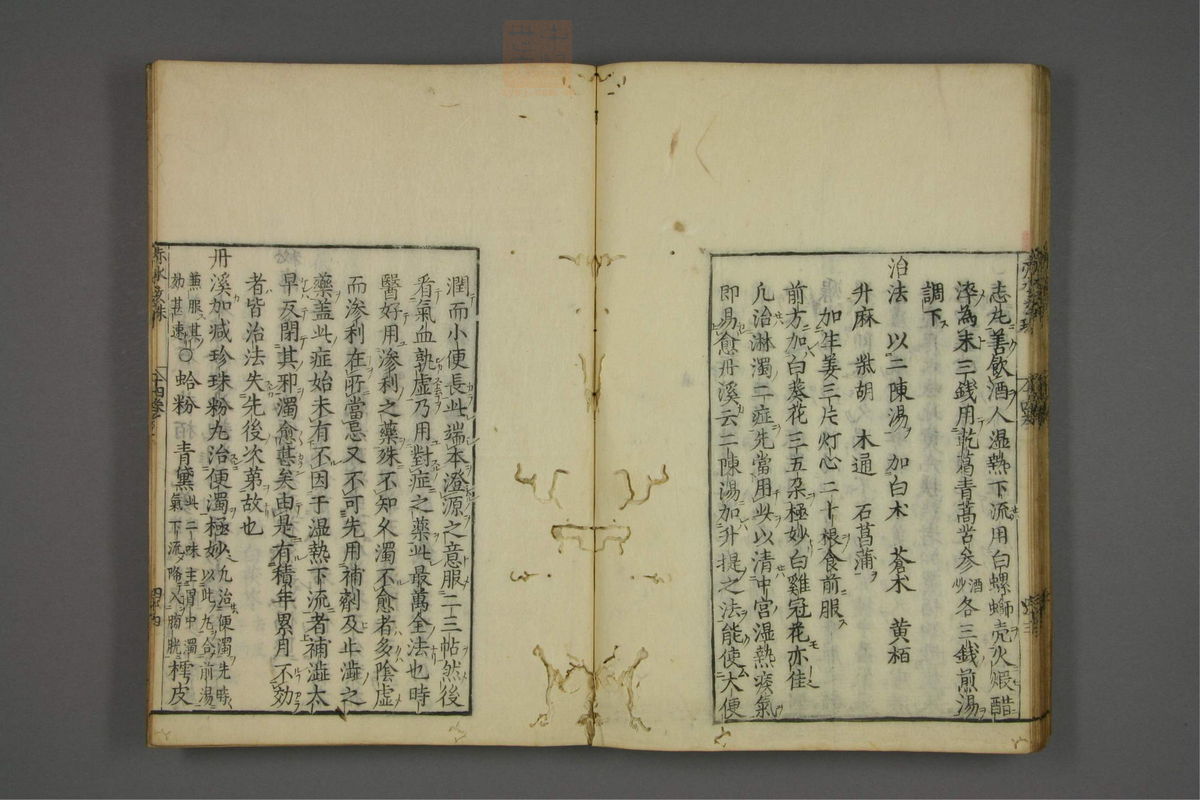 志凡善飲酒人湿熱下流用白螺螄壳火煆醋
淬為末三銭用乾葛青蒿苦參酒炒各三銭煎湯
調下
治法　以二陳湯加白朮　蒼朮　黄栢
升麻　柴胡　木通　石菖蒲
加生姜三片灯心二十根食前服
前方加白葵花三五朶極妙白雞冠花亦佳
凡治淋濁二症先當用此以清中宮湿熱痰氣
即易愈丹溪云二陳湯加升提之法能使大便
潤而小便長此端本澄源之意服二三帖然後
看氣血孰虚乃用對症之藥此最萬全法也時
醫好用滲利之藥殊不知久濁不愈者多陰虚
而滲利在所當忌又不可先用補剤及止澁之
藥盖此症始未有不因于湿熱下流者補澁太
早反閉其邪濁愈甚矣由是有積年累月不効
者皆治法失先後次第故也
丹溪加减珍珠粉丸治便濁極妙丸治便濁先時以此丸合前湯
兼服甚効甚速○蛤粉　青黛此二味主胃中濁氣下流降入膀胱樗皮